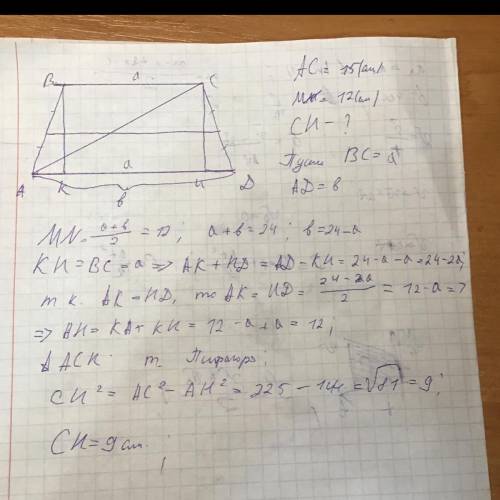 B a C
A K a H D
в
AC = 15 (см)
MN = 12 (см)
CH - ?
Пусть BC = a
AD = в
MN = a+в/2 = 12; a+в = 24; в = 24-a
KH = BC = a => AK + HD = AD - KH = 24-a-a = 24-2a;
т.к. AK = HD, то AK = HD = 24-2a/2 = 12-a =>
=> AH = KA + KH = 12 - a + a = 12;
Δ ACH т. Пифагора
CH² = AC² - AH² = 225 - 144 = √81 = 9;
CH = 9 см.;